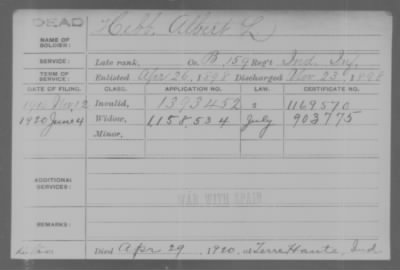 DEAD
Hebb, Albert L
NAME OF SOLDIER:
SERVICE: Late rank, Co. B, 159 Reg't Ind. Inf.
TERM OF SERVICE: Enlisted Apr 26, 1898 Discharged Nov. 23, 1898
DATE OF FILING. CLASS. APPLICATION NO. LAW. CERTIFICATE NO.
Invalid, 1393452 1169570
1920 June 4 Widow, 1158534 July 903775
Minor,
ADDITIONAL SERVICES:
WAR WITH SPAIN
REMARKS:
Died Apr 29, 1920, at Terre Haute, Ind.